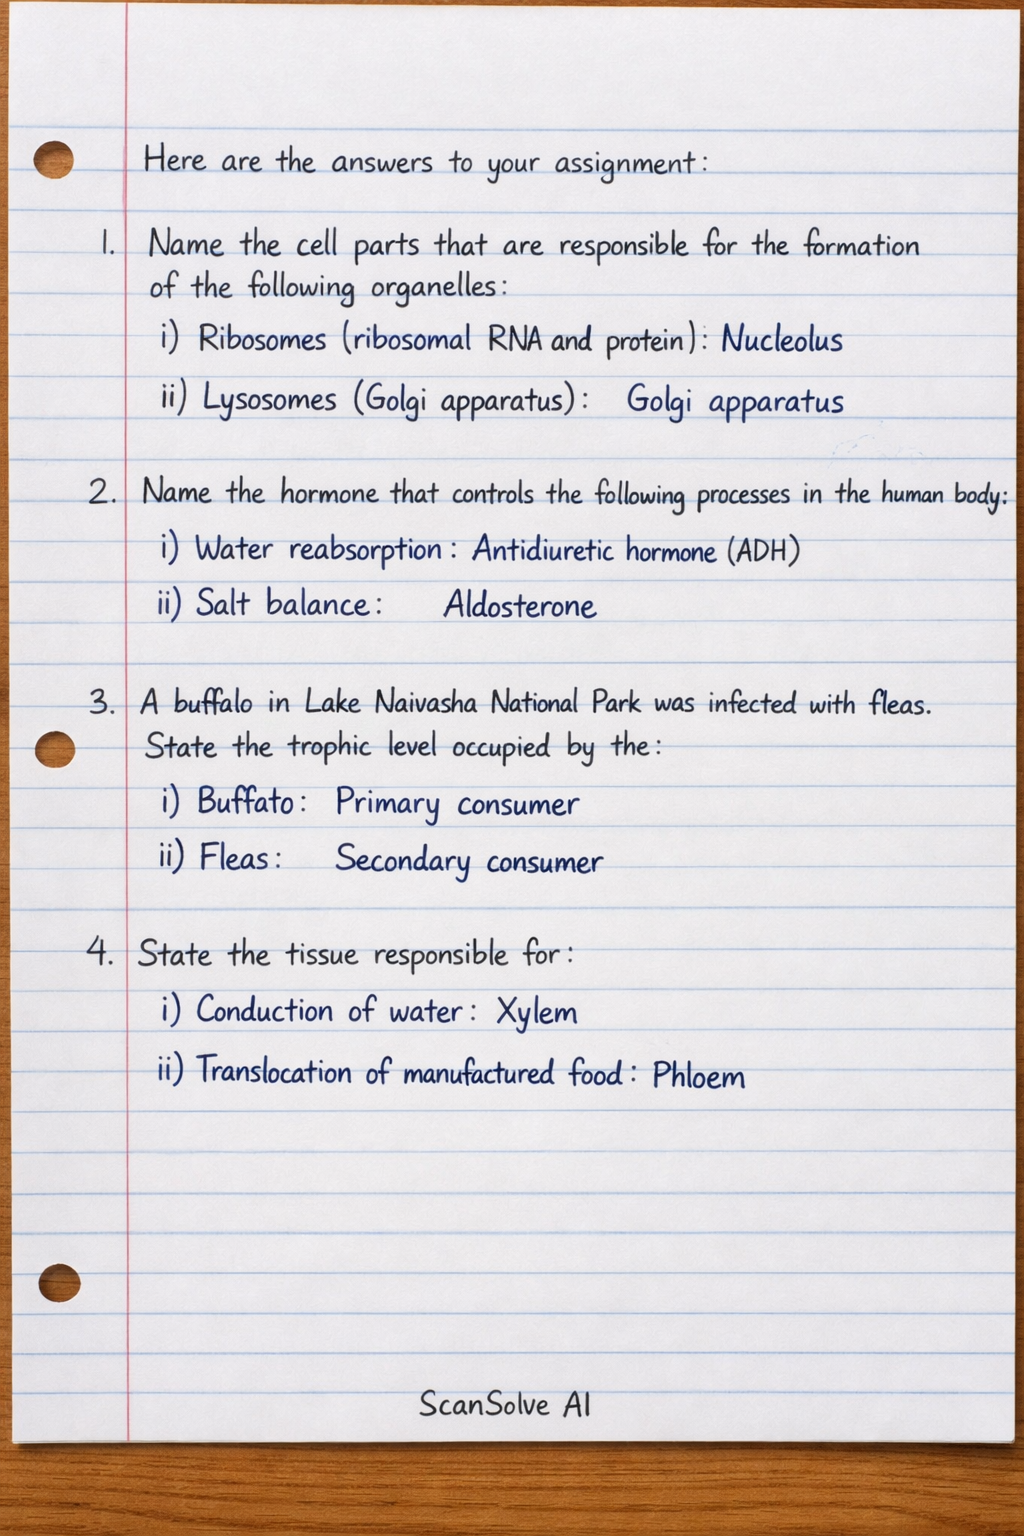 Here are the answers to your assignment:
1. Name the cell parts that are responsible for the formation
of the following organelles:
i) Ribosomes (ribosomal RNA and protein): Nucleolus
ii) Lysosomes (Golgi apparatus): Golgi apparatus
2. Name the hormone that controls the following processes in the human body:
i) Water reabsorption: Antidiuretic hormone (ADH)
ii) Salt balance: Aldosterone
3. A buffalo in Lake Naivasha National Park was infected with fleas.
State the trophic level occupied by the:
i) Buffato: Primary consumer
ii) Fleas: Secondary consumer
4. State the tissue responsible for:
i) Conduction of water: Xylem
ii) Translocation of manufactured food: Phloem
ScanSolve AI